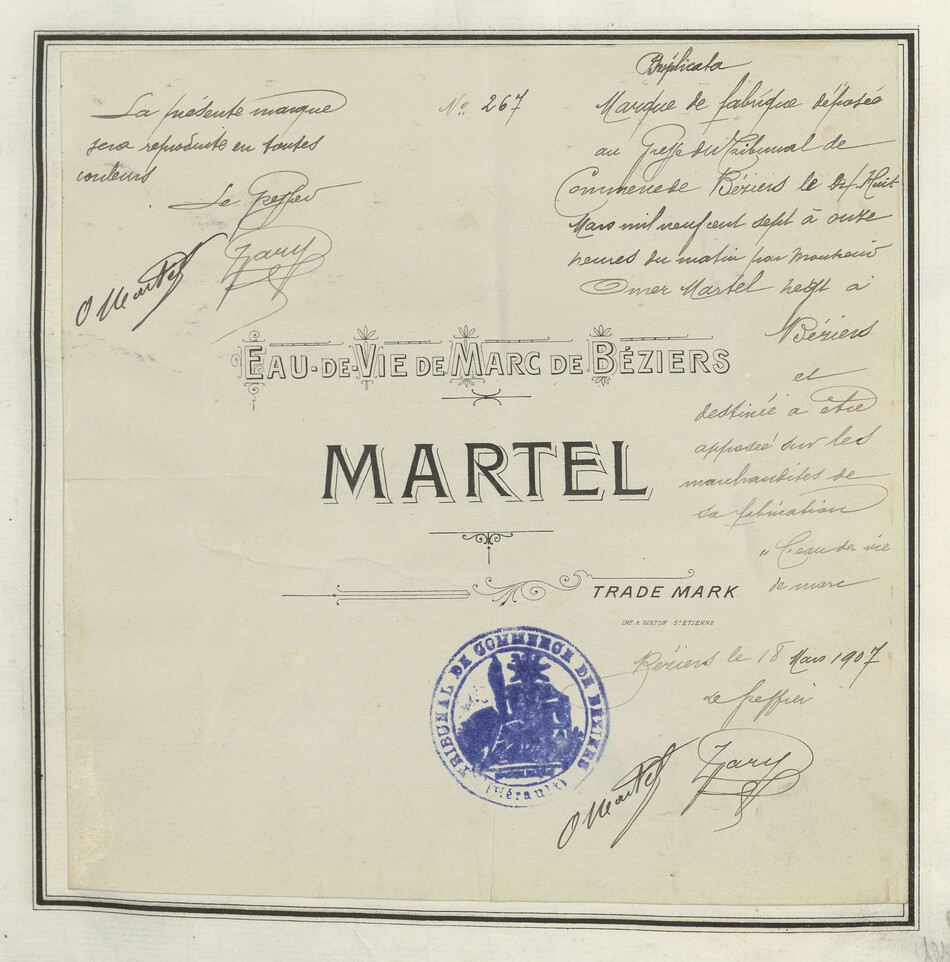 Duplicata
La présente marque
sera reproduite en toutes
couleurs
Le Greffier
O Martel
Zary
No 267
Marque de fabrique déposée
au Greffe du Tribunal de
Commerce de Béziers le Dix-Huit
Mars mil neuf cent sept à onze
heures du matin par Monsieur
Omer Martel negt à
Béziers
et
destinée à être
apposée sur les
marchandises de
sa fabrication
"l'eau de vie
de marc
EAU-DE-VIE DE MARC DE BÉZIERS
MARTEL
TRADE MARK
IMP. A. WATON ST ETIENNE
Béziers le 18 Mars 1907
Le Greffier
O Martel
Zary
TRIBUNAL DE COMMERCE DE BÉZIERS
(Hérault)